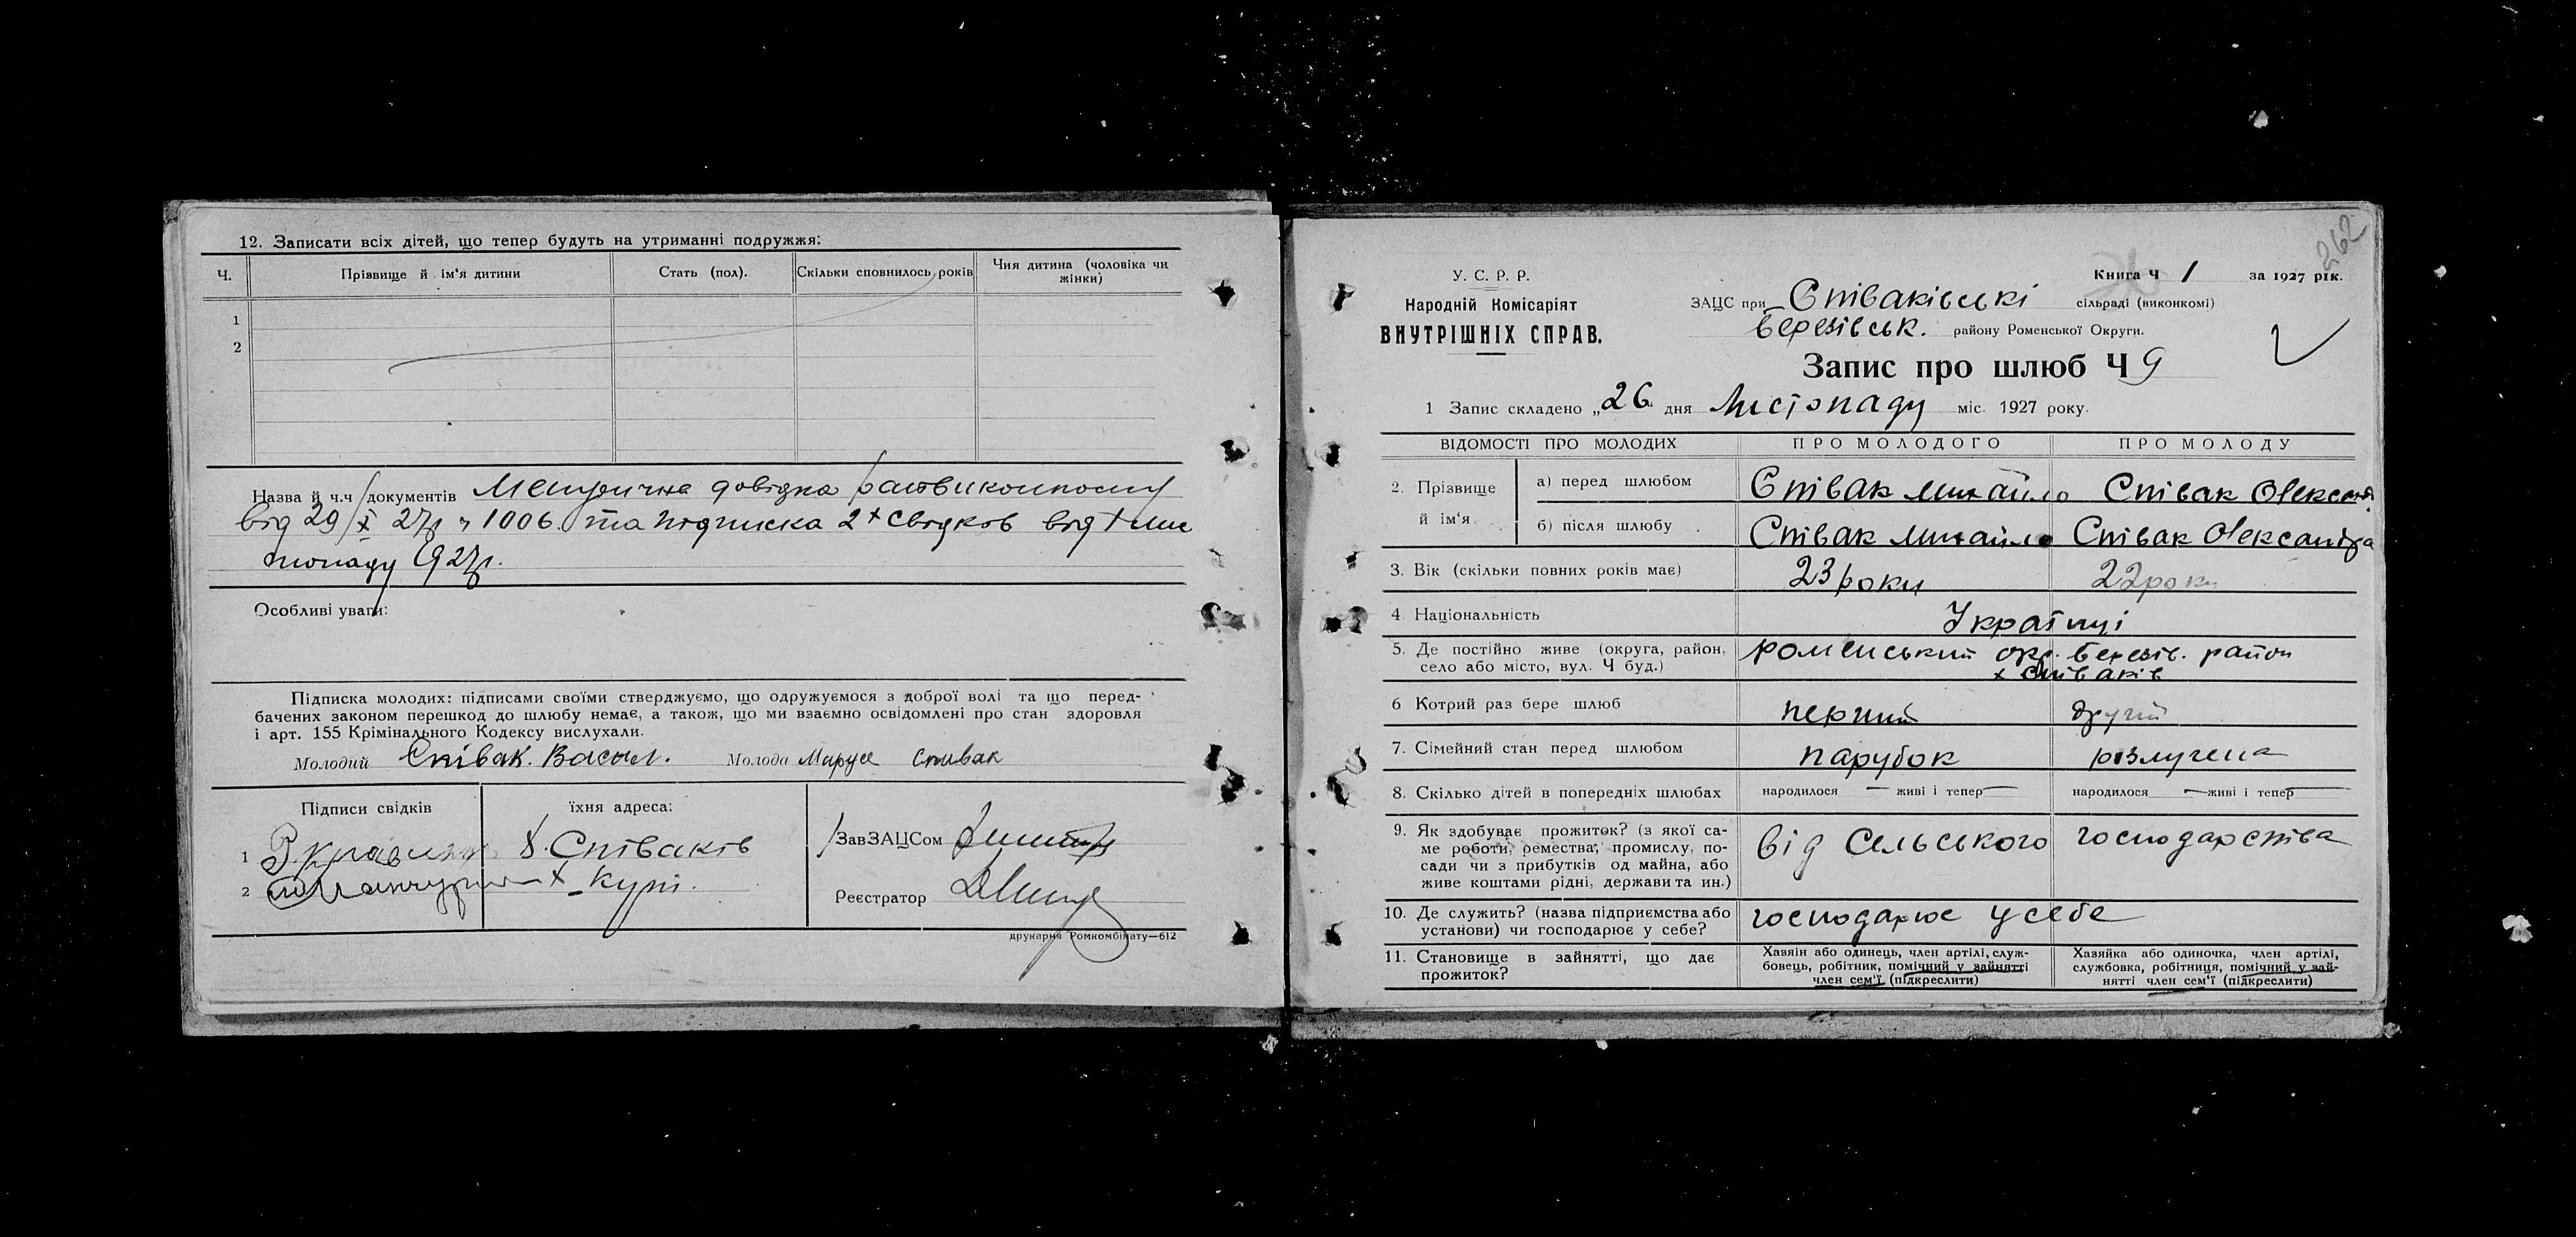 12. Записати всіх дітей, що тепер будуть на утриманні подружжя:
Ч. Прізвище й ім'я дитини Стать (пол). Скільки сповнилось років Чия дитина (чоловіка чи жінки)
1
2
Назва й ч.ч документів довідка
від 29/X 27р ч 1006. та підписка 2х свідков від
927р.
Особливі уваги:
Підписка молодих: підписами своїми стверджуємо, що одружуємося з доброї волі та що перед-
бачених законом перешкод до шлюбу немає, а також, що ми взаємно освідомлені про стан здоровля
і арт. 155 Крімінального Кодексу вислухали.
Молодий Співак. Васыл. Молода Маруся Спивак
Підписи свідків їхня адреса:
1 х. Співаків
2
ЗавЗАЦСом
Реєстратор
друкарня Ромкомбінату—612
262
У. С. Р. Р.
Народній Комісаріят
ВНУТРІШНІХ СПРАВ.
Книга Ч 1 за 1927 рік.
ЗАЦС при Співаківські сільраді (виконкомі)
Березівськ. району Роменської Округи.
Запис про шлюб Ч 9
1 Запис складено „26 дня Листопаду міс. 1927 року.
ВІДОМОСТІ ПРО МОЛОДИХ ПРО МОЛОДОГО ПРО МОЛОДУ
2. Прізвище й ім'я
а) перед шлюбом Співак Михайло Співак Олександ
б) після шлюбу Співак Михайло Співак Олександра
3. Вік (скільки повних років має) 23 роки 22 роки
4 Національність Українці
5. Де постійно живе (округа, район, село або місто, вул. Ч буд.) роменський окр. Березів. район
х Співаків
6 Котрий раз бере шлюб перший другий
7. Сімейний стан перед шлюбом парубок розлучена
8. Скілько дітей в попередніх шлюбах народилося — живі і тепер — народилося — живі і тепер —
9. Як здобуває прожиток? (з якої са-
ме роботи, ремества, промислу, по-
сади чи з прибутків од майна, або
живе коштами рідні, держави та ин.)
від Сельського господарства
10. Де служить? (назва підприємства або
установи) чи господарює у себе?
господарює у себе
11. Становище в зайнятті, що дає
прожиток?
Хазяїн або одинець, член артілі, служ-
бовець, робітник, помічний у зайнятті
член сем'ї (підкреслити)
Хазяйка або одиночка, член артілі,
службовка, робітниця, помічний у зай-
нятті член сем'ї (підкреслити)